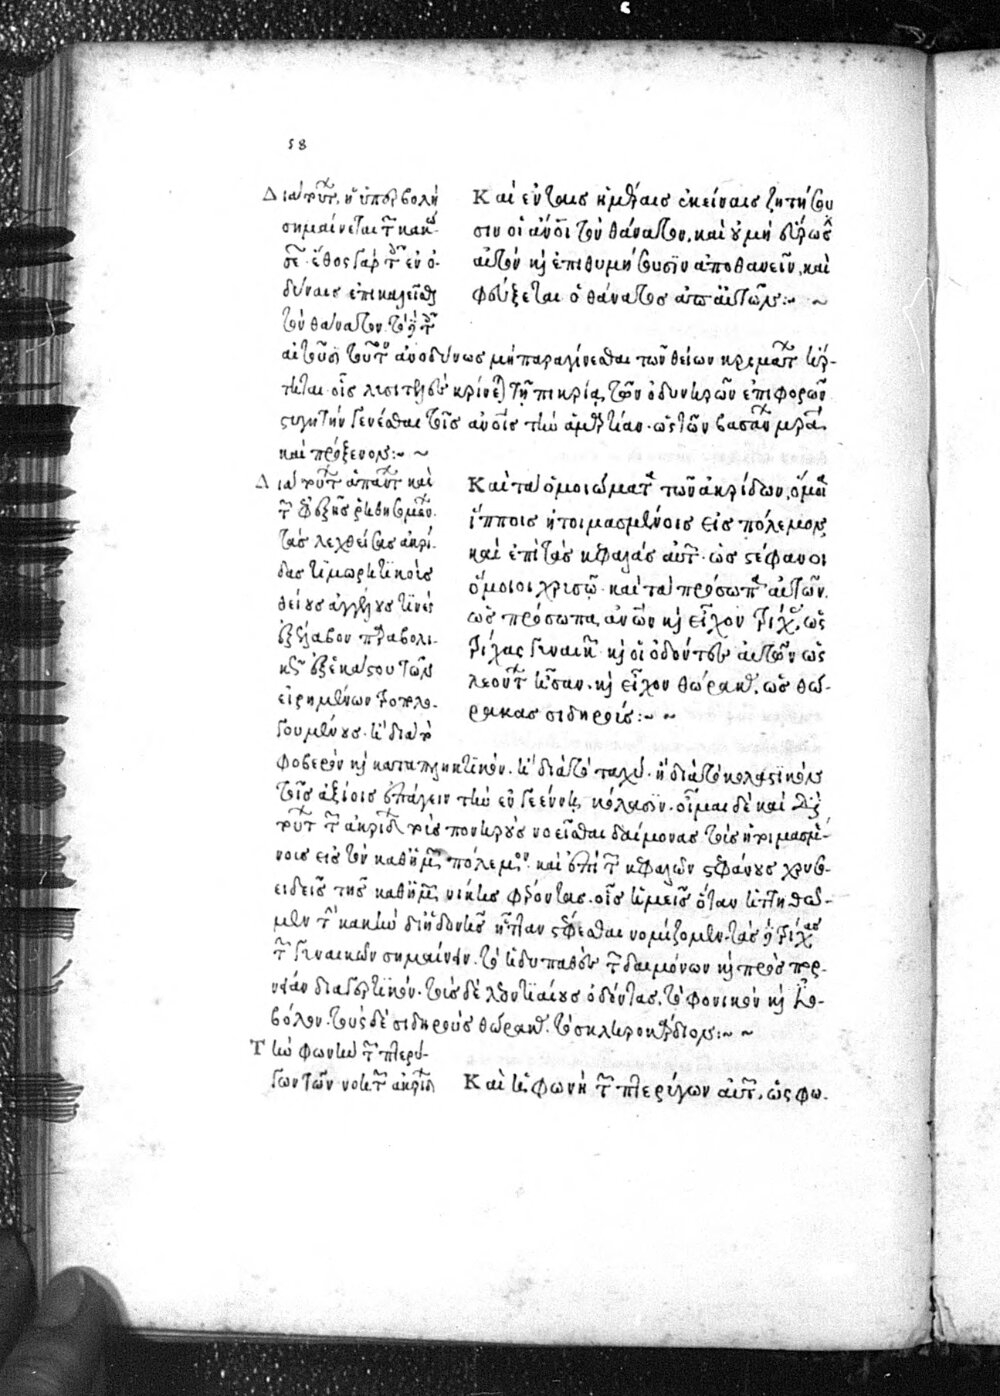 58
Διὰ τούτου ἡ ὑπερβολὴ
σημαίνεται τῶν κακώ
σεων· ἔθος γὰρ τοῖς ἐν ὀ-
δύναις ἐπικαλεῖσθαι
τὸν θάνατον· τὸ δὲ
Καὶ ἐν ταῖς ἡμέραις ἐκείναις ζητήσου
σιν οἱ ἄνοι τὸν θάνατον, καὶ οὐ μὴ εὕρωσιν
αὐτόν κ ἐπιθυμήσουσϊν ἀποθανεῖν, καὶ
φεύξεται ὁ θάνατος ἀπ αὐτῶν:~ ~
αἰτοῦσι τοῦτον ἀνοδύνως μὴ παραγίνεσθαι τῶν θείων κριμάτων ἤρ-
τηται· οἷς λυσιτελὲς κρίνεται τῇ πικρίᾳ τῶν ὀδυνηρῶν ἐπιφορῶν
στυγητὴν γενέσθαι τοῖς ἀνοις τὴν ἁμαρτίαν· ὡς τῶν βασάνων μρα
καὶ πρόξενον:~ ~
Διὰ τούτων ἁπάντων καὶ
τῶν ἑξῆς ῥηθησομένων
τὰς λεχθείσας ἀκρί-
δας τιμωρητϊκοὺς
θείους ἀγγέλους τϊνὲς
ἐξέλαβον παραβολι-
κῶς ἐξ ἑκάστου τῶν
εἰρημένων τροπολο-
γουμένους· ἢ διὰ τὸ
Καὶ τὰ ὁμοιώματα τῶν ἀκρίδων, ὅμοια
ἵπποις ἡτοιμασμένοις εἰς πόλεμον
καὶ ἐπὶ τὰς κεφαλὰς αὐτῶν· ὡς στέφανοι
ὅμοιοι χρυσῷ· καὶ τὰ πρόσωπα αὐτῶν
ὡς πρόσωπα ἀνων κ εἶχον τρίχας ὡς
τρίχας γυναικῶν κ οἱ ὀδόντες αὐτῶν ὡς
λεόντων ἦσαν. κ εἶχον θώρακας ὡς θώ-
ρακας σιδηροῦς:~ ~
φοβερὸν κ καταπληκτϊκὸν· ἢ διὰ τὸ ταχύ· ἢ διὰ τὸ κολαστϊκὸν
τοῖς ἀξίοις ἐπάγειν τὴν ἐν γεέννῃ κόλασϊν· οἶμαι δὲ καὶ διὰ
τούτων τῶν ἀκρίδων τοὺς πονηροὺς νοεῖσθαι δαίμονας τοὺς ἡτοιμασμέ-
νοις εἰς τὸν καθ ἡμῶν πόλεμον· καὶ ἐπὶ τῶν κεφαλῶν στεφάνους χρυσο-
ειδεῖς τῆς καθ ἡμῶν νίκης φέροντας· οἷς ἡμεῖς ὅταν ἡττηθῶ-
μεν τῶν κακῶν δι ἡδονῆς ἧτταν στέφεσθαι νομίζομεν· τὰς δὲ τρίχας
τῶν γυναικῶν σημαίνειν· τὸ ἡδυπαθὲς τῶν δαιμόνων κ πρὸς πορ-
νείαν διεγερτϊκὸν· τοὺς δὲ λεοντϊαίους ὀδόντας, τὸ φονικὸν κ ἰο-
βόλον· τοὺς δὲ σιδηροῦς θώρακας τὸ σκληροκάρδιον:~ ~
Τὴν φωνὴν τῶν πτερύ-
γων τῶν νοητῶν ἀκρίδων
Καὶ ἡ φωνὴ τῶν πτερύγων αὐτῶν, ὡς φω-